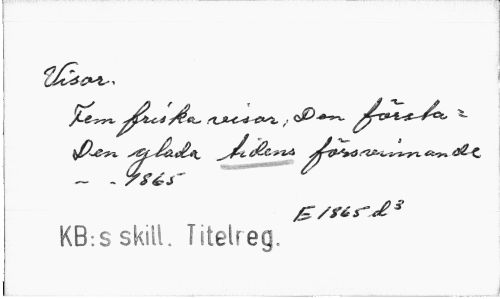 Visor.
Fem friska visor, Den första =
Den glada tidens försvinnande
- - 1865
E 1865 d³
KB:s skill. Titelreg.